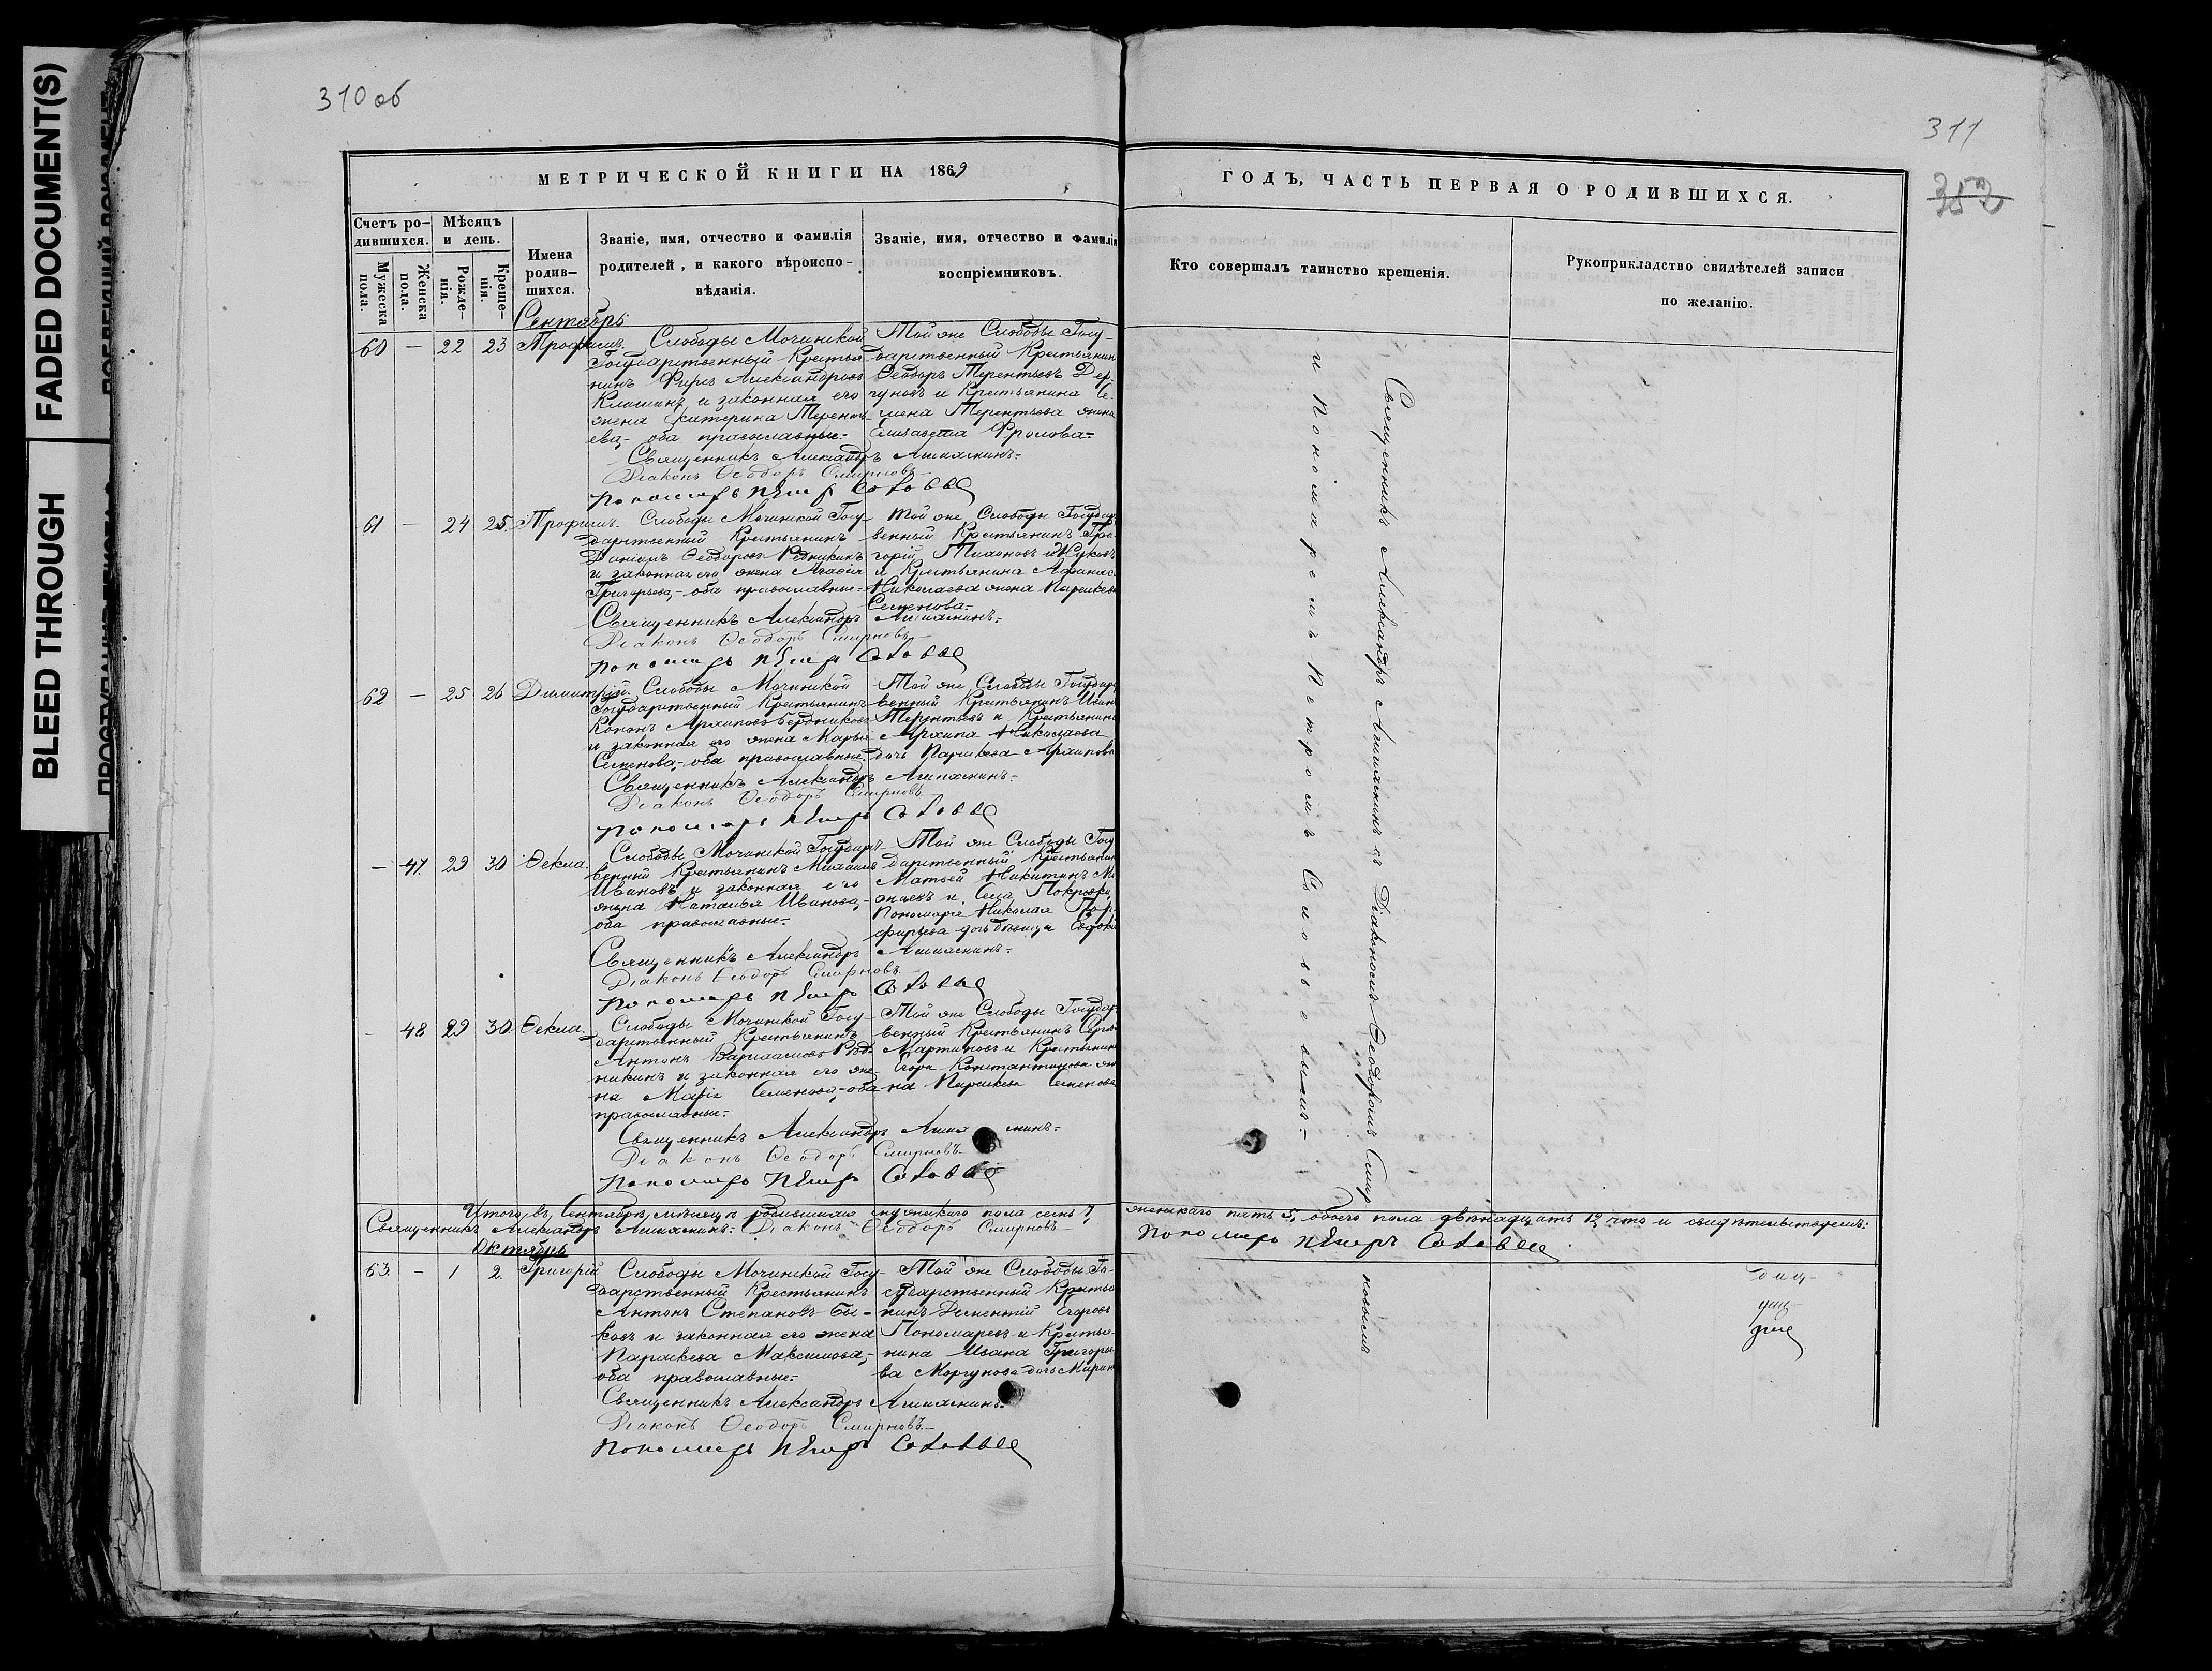 FADED DOCUMENT(S)
BLEED THROUGH
310 об
311
352
МЕТРИЧЕСКОЙ КНИГИ НА 1869
ГОДЪ, ЧАСТЬ ПЕРВАЯ О РОДИВШИХСЯ.
Счетъ ро-
дившихся.
Мужеска
пола.
Женска
пола.
Мѣсяцъ
и день.
Рожде-
нія.
Креще-
нія.
Имена
родив-
шихся.
Званіе, имя, отчество и фамилія
родителей, и какого вѣроиспо-
вѣданія.
Званіе, имя, отчество и фамилія
воспріемниковъ.
Кто совершалъ таинство крещенія.
Рукоприкладство свидѣтелей записи
по желанію.
Сентябрь
60 — 22 23 Трофимъ.
Слободы Мочинской
Государственный Крестья-
нинъ Фирсъ Александровъ
и законная его
жена Екатерина Терентъ-
ева, оба православные.-
Той же Слободы Госу-
дарственный Крестьянин
Ѳеодоръ Терентьевъ Дер-
гуновъ и Крестьянина Се-
мена Терентьева жена
Елисавета Фролова.-
Священникъ Александръ
Діаконъ Ѳеодоръ Смирновъ
Пономарь Петръ
61 — 24 25. Трофимъ.
Слободы Мочинской Госу-
дарственный Крестьянинъ
Даніилъ Ѳеодоровъ
и законная его жена Агафія
Григорьева,- оба православные.-
Той же Слободы Государ
венный Крестьянинъ Гри-
горій Тихоновъ
и Крестьянина Афанас
Николаева жена Параскева
Семенова.-
Священникъ Александръ
Діаконъ Ѳеодоръ Смирновъ
Пономарь Петръ
62 — 25 26 Димитрій.
Слободы Мочинской
Государственный Крестьянинъ
Кононъ Архиповъ Бердниковъ
и законная его жена Марья
Семенова,- оба православные.
Той же Слободы Государ
венный Крестьянинъ Иван
Терентьевъ и Крестьянина
Архипа Николаева
дочь Параскева Архипова
Священникъ Александръ
Діаконъ Ѳеодоръ Смирновъ
Пономарь Петръ
— 47. 29 30 Ѳекла.
Слободы Мочинской Государст-
венный Крестьянинъ Михаилъ
Ивановъ и законная его
жена Наталья Иванова,-
оба православные.-
Той же Слободы Госу
дарственный Крестьянин
Матвей Никитинъ
и Села Покровки
Пономаря Николая Пор
фирьева дочь девица Евдокі
Священникъ Александръ
Діаконъ Ѳеодоръ Смирновъ
Пономарь Петръ
— 48 29 30 Ѳекла.
Слободы Мочинской Госу-
дарственный Крестьянинъ
Антонъ Варлаамовъ Ряд-
никинъ и законная его же-
на Марія Семенова,- оба
православные.-
Той же Слободы Государ
венный Крестьянинъ Серге
Мартиновъ и Крестьянина
Егора Константинова же
на Параскева Семенова
Священникъ Александръ
Діаконъ Ѳеодоръ Смирновъ
Пономарь Петръ
Священникъ Александръ съ Діакономъ Ѳеодоромъ Смир
и Пономаремъ Петромъ
Итого въ Сентябрѣ мѣсяцѣ родившихся мужескаго пола семь 7,
женскаго пять 5, обоего пола двѣнадцать 12, что и свидѣтельствуемъ:
Священникъ Александръ Діаконъ Ѳеодоръ Смирновъ
Пономарь Петръ
Октябрь
63. — 1 2. Григорій
Слободы Мочинской Госу-
дарственный Крестьянинъ
Антонъ Степановъ Бы-
ковъ и законная его жена
Параскева Максимова,-
оба православные.-
Той же Слободы Го-
сударственный Крестья
нинъ Дементій Егоровъ
Пономаревъ и Крестья-
нина Ивана Григорье
ва Моргунова дочь Марин
новымъ
Священникъ Александръ
Діаконъ Ѳеодоръ Смирновъ
Пономарь Петръ